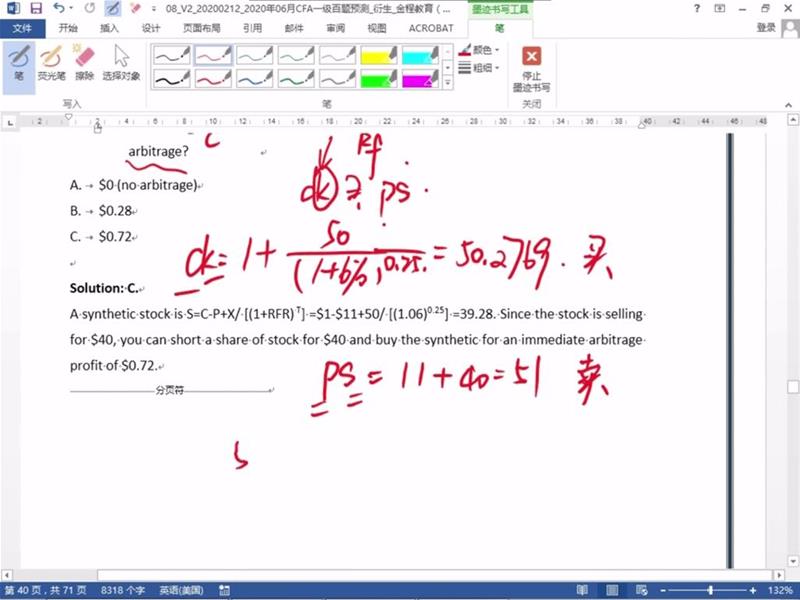 08_V2_20200212_2020年06月CFA一级百题预测_衍生_金程教育 (...
墨迹书写工具
文件 开始 插入 设计 页面布局 引用 邮件 审阅 视图 ACROBAT 笔
登录
笔 荧光笔 擦除 选择对象
颜色
粗细
停止
墨迹书写
写入 笔 关闭
2 2 4 6 8 10 12 14 16 18 20 22 24 26 28 30 32 34 36 38 40 42 44 46 48
arbitrage? C
Rf
A. → $0 (no arbitrage)
ck ≥ ps
B. → $0.28
C. → $0.72
ck = 1 + 50 / (1+6%)^0.25 = 50.2769. 买
Solution: C.
A synthetic stock is S=C-P+X/ [(1+RFR)^T] =$1-$11+50/ [(1.06)^0.25] =39.28. Since the stock is selling
for $40, you can short a share of stock for $40 and buy the synthetic for an immediate arbitrage
profit of $0.72.
分页符
ps = 11+40=51 卖
第 40 页，共 71 页 8318 个字 英语(美国) 132%